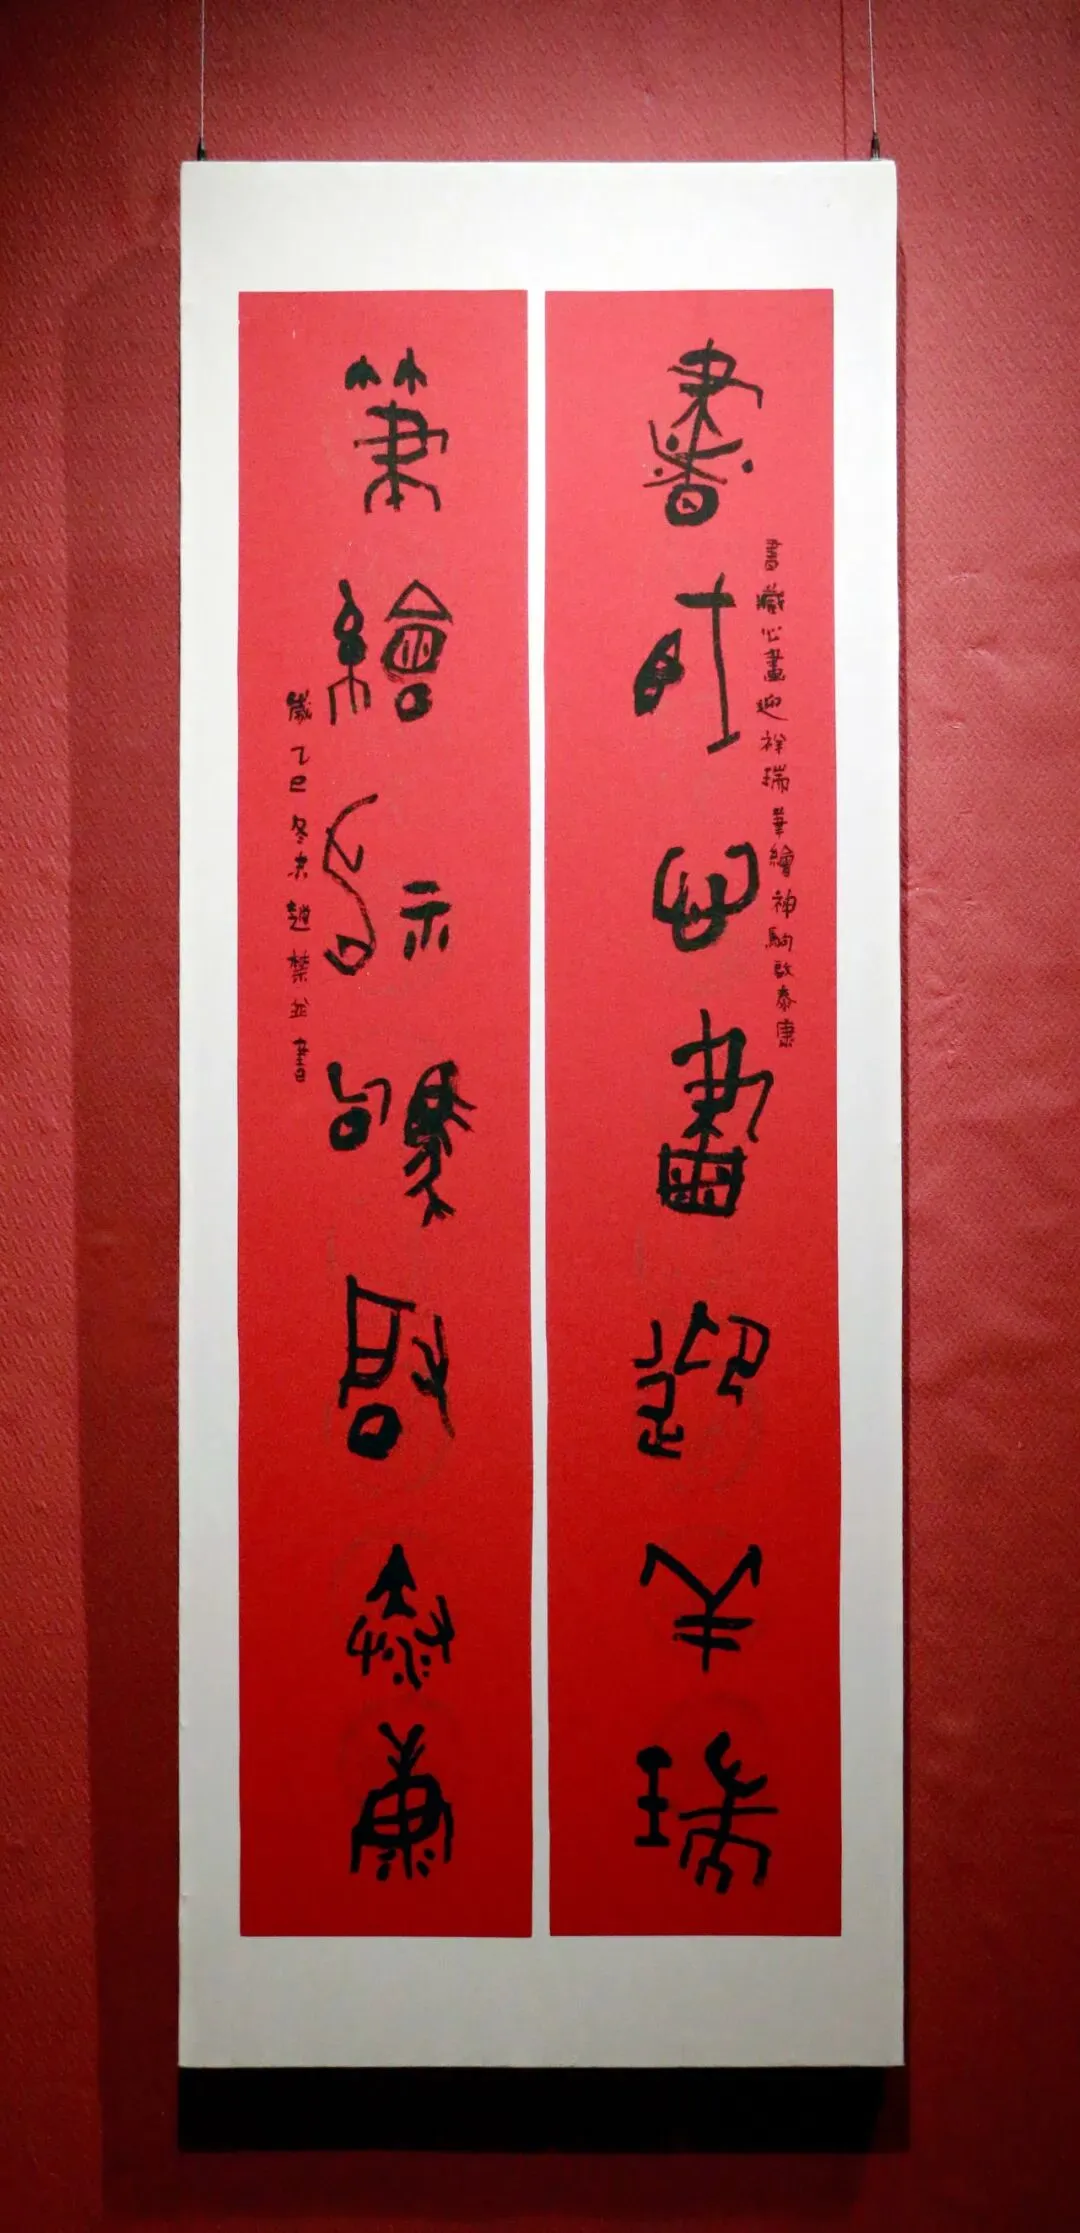 書藏心畫迎祥瑞筆繪神駒啟泰康
書藏心畫迎祥瑞
筆繪神駒啟泰康
歲乙巳冬末趙並書